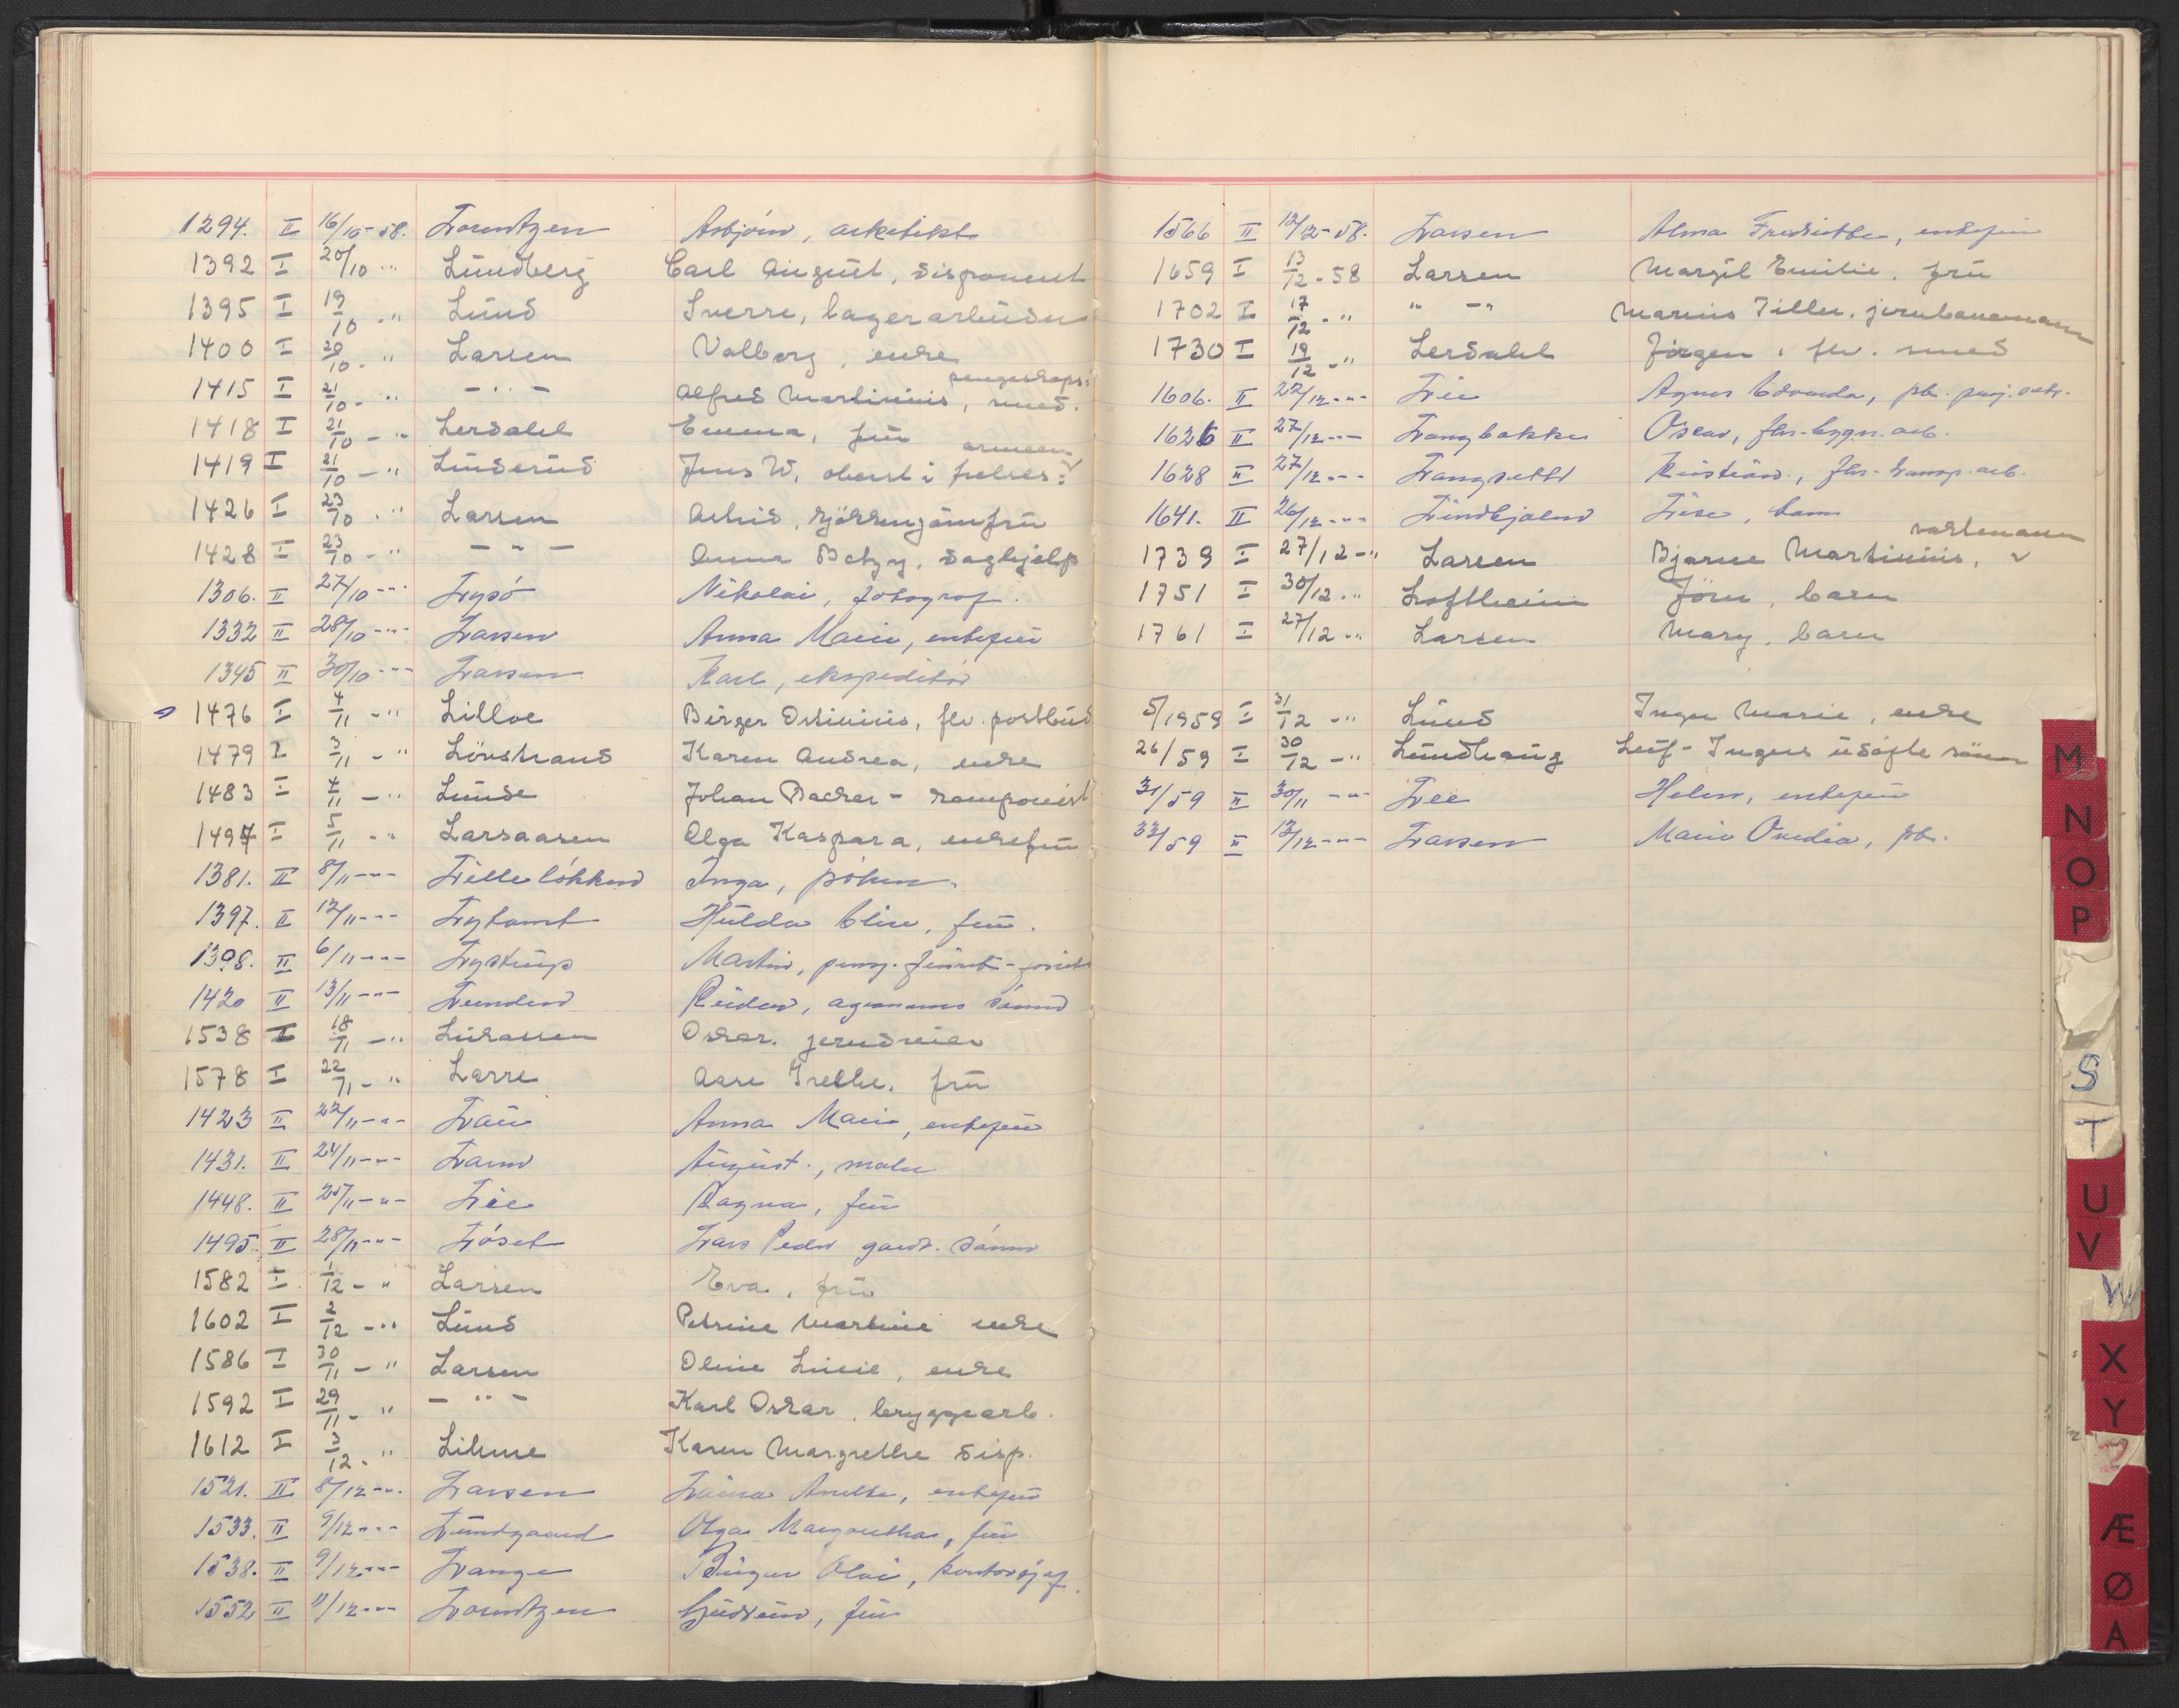 1294. II 16/10-58. Lorentzen Asbjörn, arkitekt
1392 I 20/10 -" Lundberg Carl August, disponent
1395 I 19/10 -" Lund Sverre, lagerarbeider
1400 I 20/10 - " Larsen Valborg, enke
pengeskaps-
1415 I 21/10 - " - " - Alfred Martinius, smed.
1418 I 21/10 - " Lerdahl Emma, frü
armeen
1419 I 21/10 - " Linderud Jens W, oberst i frelses-
1426 I 23/10 - " Larsen Astrid, kjökkenjomfrü
1428 I 23/10 - " - " - Anna Betzy, daghjelp
1306. II 27/10 -"- Lysö Nikolai, fotograf.
1332 II 28/10 -"- Larsen Anna Marie, enkefrü
1345 II 30/10 -"- Larsen Karl, ekspeditör
1476 I 4/11 - " Lilloe Birger Ostinius, flv. postbud
1479 I 3/11 - " Lövstrand Karen Andrea, enke
1483 I 4/11 - " Lunde Johan Backer- komponist
1497 I 5/11 - " Larsaasen Olga Kaspara, enkefrü
1381. II 8/11 -"- Lillelökken Inga, pöken.
1397. II 12/11 -"- Hulda Elise, frü.
1398. II 6/11 -"- Lystrup Martin, pens.
1420 II 13/11 -"- Lunden Reidar, agronoms sönn
1538 I 18/11 - " Lukassen Oskar.
1578 I 22/11 - " Larre Aase Irellie, frü
1423 II 22/11 -"- Lau Anna Marie, enkefrü
1431. II 24/11 -"- August, maler
1448. II 25/11 -"- Lie Ragna, frü
1495. II 28/11 -"- Löset Lars Peder gaard. sönn
1582 I 1/12 - " Larsen Eva, frü
1602 I 2/12 - " Lund Petrine Martine enke
1586 I 30/11 - " Larsen Oline Lucie, enke
1592 I 29/11 - " - " - Karl Oskar, bryggearb.
1612 I 3/12 - " Lihme Karen Margrethe disp.
1521. II 8/12 -"- Larsen Laura Anette, enkefrü
1533. II 9/12 -"- Lundgaard Olga Margaretha, frü
1538. II 9/12 -"- Lange Birger Olai, kontorsjef.
1552 II 11/12 -"- Lorentzen Gudrun, frü
1566 II 12/12-58. Larsen Alma Fredrikke, enkefrü
1659 I 13/12-58 Larsen Margit Emilie, frü
1702 I 17/12 - " " - " Marius Tiller, jernbanemann
1730 I 19/12 - " Lerdahl Jörgen, flv. smed
1606. II 22/12 -"- Lie Agnes Edvarda, pb.
1626 II 27/12 -"- Langbakken Oscar, fhv. bygn. arb.
1628 II 27/12 -"- Langseth Kristian, fhv. transp. arb.
1641. II 26/12 -"- Lindhjelm Lise, barn
vaktmann
1739 I 27/12 - " Larsen Bjarne Martinius,
1751 I 30/12 - " Loftheim Jörn, barn
1761 I 27/12 - " Larsen Mary, barn
5/1959 I 31/12 - " Lund Inga Marie, enke
26/59 I 30/12 - " Lundhaug Leif - Ingers üdöpte sönn
31/59 II 30/11 -"- Lee Helen, enkefrü
33/59 II 12/12 -"- Larsen Marie Ovedia, pb.
M
N
O
P
S
T
U
V
W
X
Y
Z
Æ
Ø
A